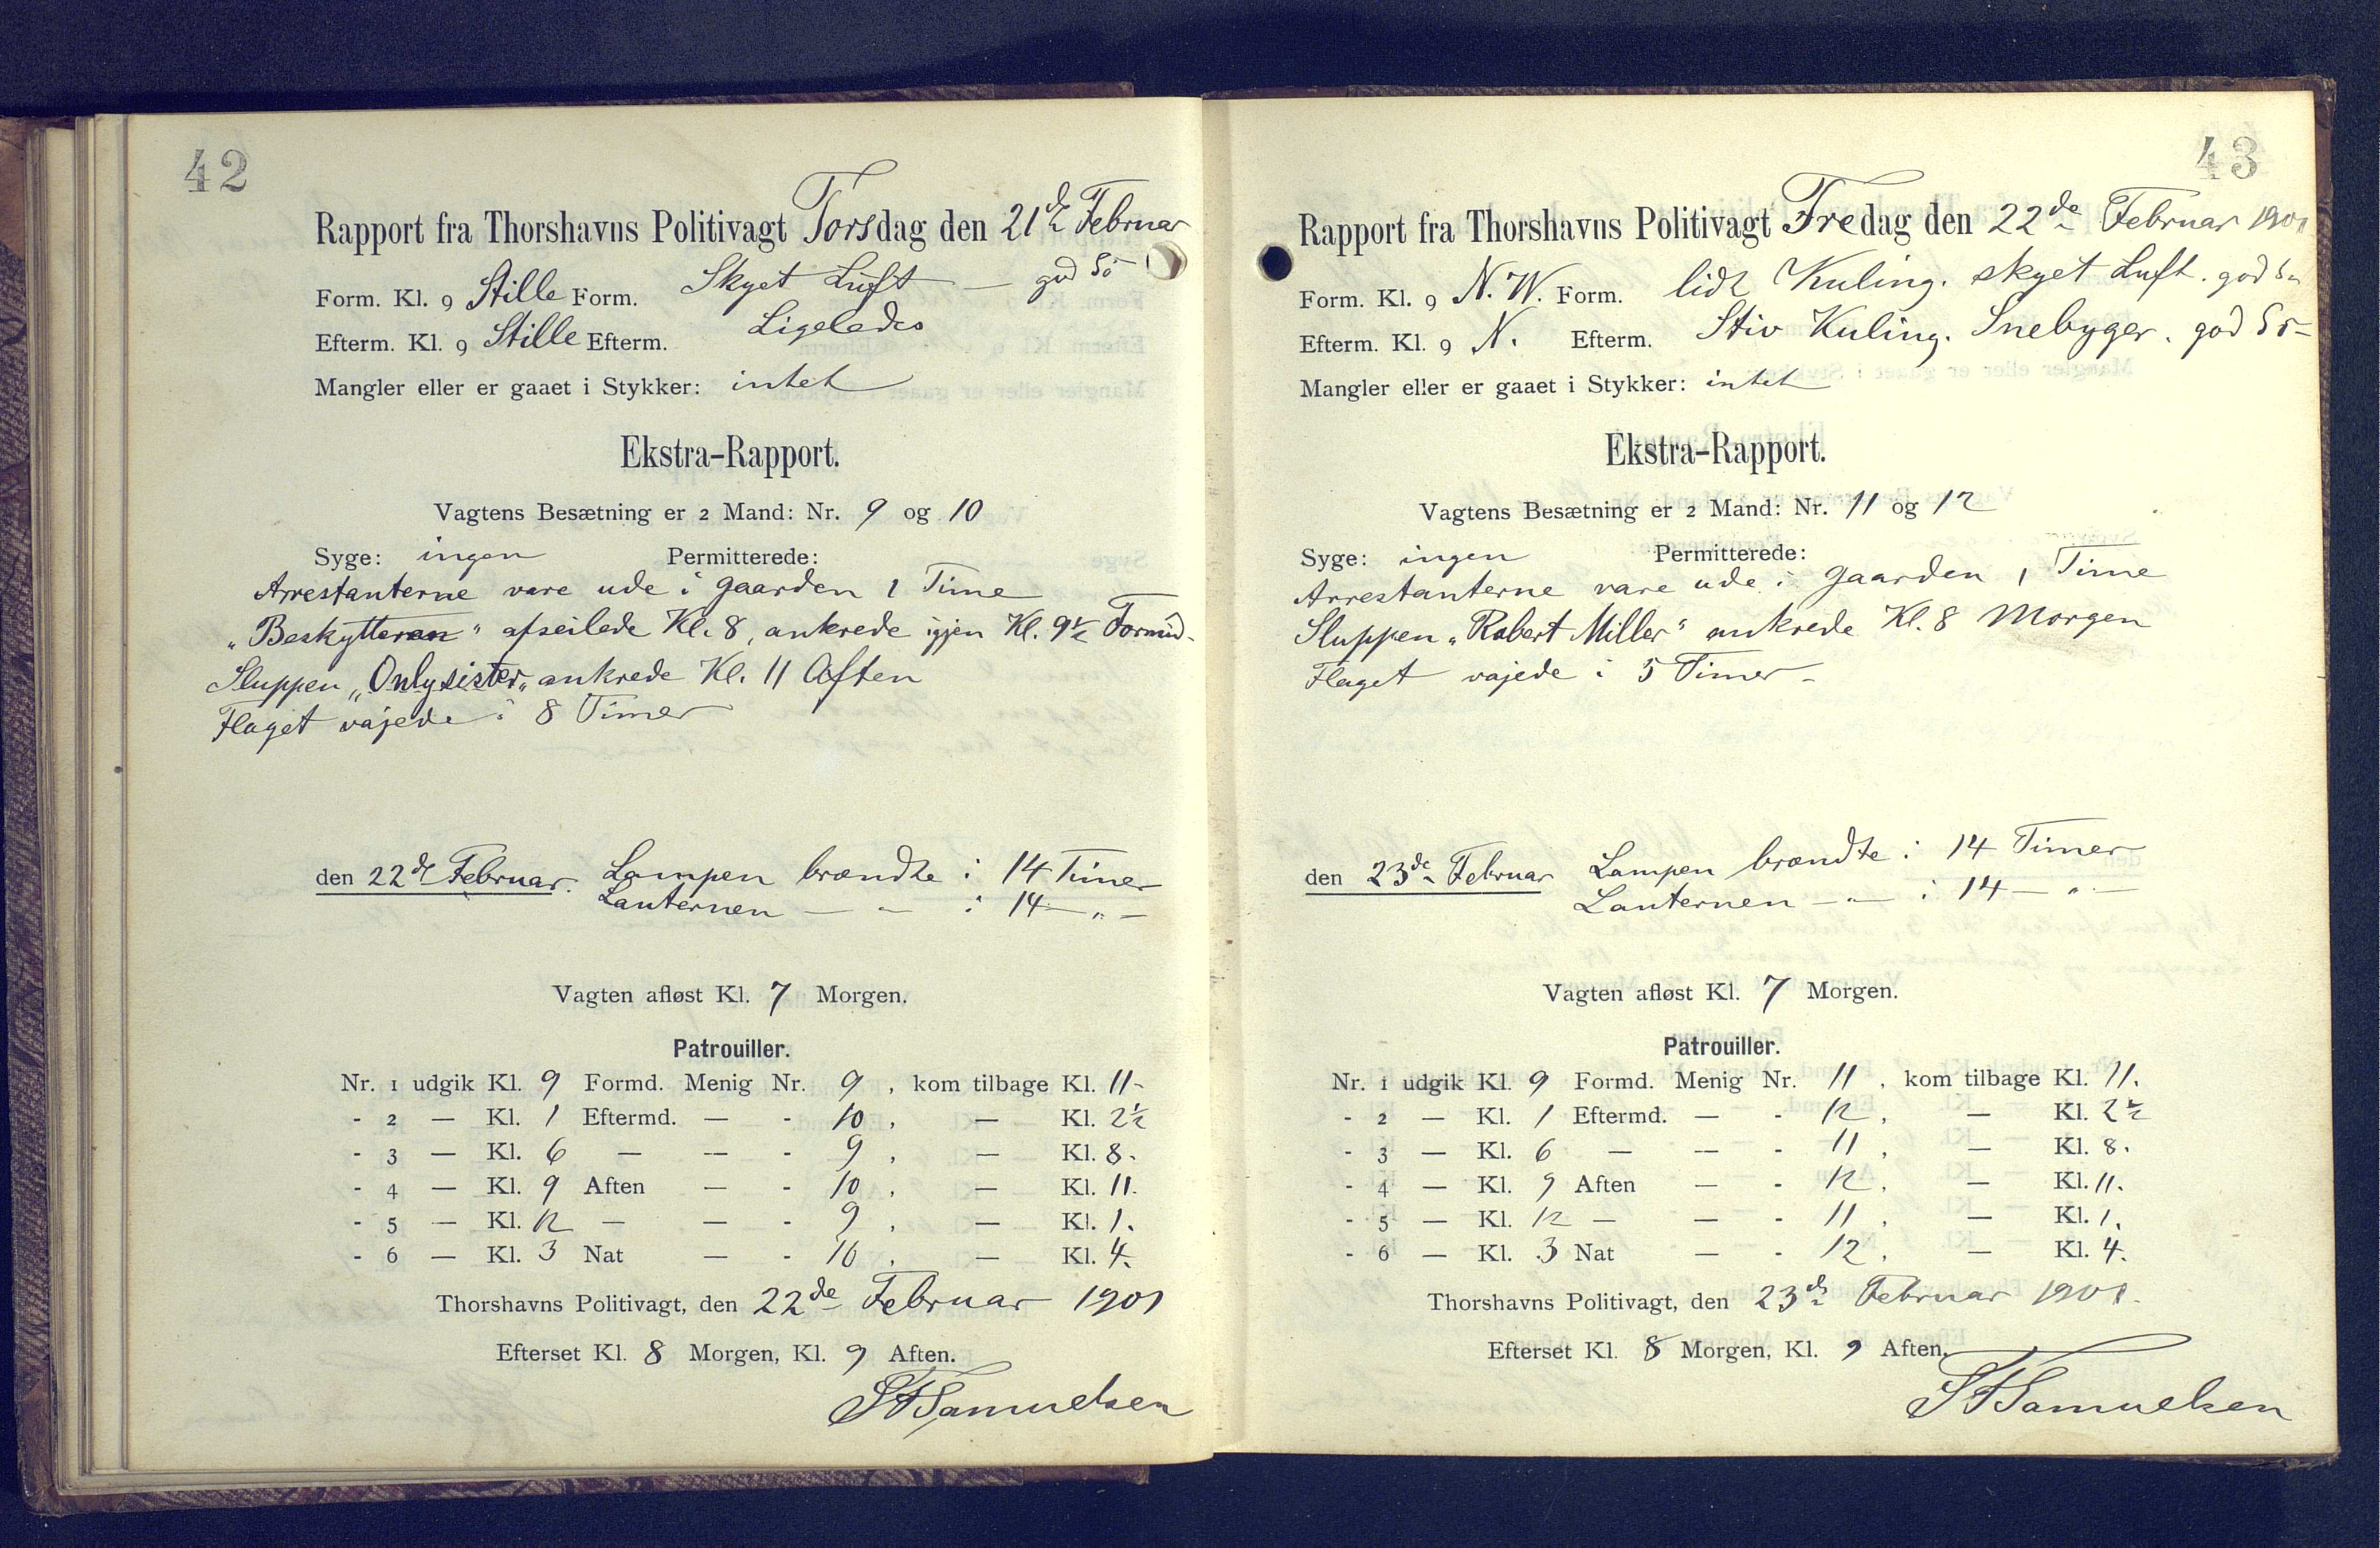 42
Rapport fra Thorshavns Politivagt Torsdag den 21de Februar
Form. Kl. 9 Stille Form. Skyet Luft — god Sö
Efterm. Kl. 9 Stille Efterm. Ligeledes
Mangler eller er gaaet i Stykker: intet
Ekstra-Rapport.
Vagtens Besætning er 2 Mand: Nr. 9 og 10
Syge: ingen Permitterede:
Arrestanterne vare ude i Gaarden 1 Time
„Beskytteren" afseilede Kl. 8, ankrede igjen Kl. 9½ Formid-
Sluppen „Only sister„ ankrede Kl. 11 Aften
Flaget vajede i 8 Timer
den 22de Februar. Lampen brændte i 14 Timer
Lanternen — " — i 14 — " —
Vagten afløst Kl. 7 Morgen.
Patrouiller.
Nr. 1 udgik Kl. 9 Formd. Menig Nr. 9, kom tilbage Kl. 11-
- 2 — Kl. 1 Eftermd. — - 10, — Kl. 2½
- 3 — Kl. 6 — — - 9, — Kl. 8.
- 4 — Kl. 9 Aften — - 10, — Kl. 11.
- 5 — Kl. 12 — — - 9, — Kl. 1.
- 6 — Kl. 3 Nat — - 10, — Kl. 4.
Thorshavns Politivagt, den 22de Februar 1901
Efterset Kl. 8 Morgen, Kl. 9 Aften.
Samuelsen
43
Rapport fra Thorshavns Politivagt Fredag den 22de Februar 1901
Form. Kl. 9 N.W. Form. lidt Kuling. skyet Luft. god Sö
Efterm. Kl. 9 N. Efterm. Stiv Kuling. Snebyger. god Sö-
Mangler eller er gaaet i Stykker: intet
Ekstra-Rapport.
Vagtens Besætning er 2 Mand: Nr. 11 og 12
Syge: ingen Permitterede:
Arrestanterne vare ude i Gaarden 1 Time
Sluppen „Robert Miller" ankrede Kl. 8 Morgen
Flaget vajede i 5 Timer-
den 23de Februar Lampen brændte i 14 Timer
Lanternen — " — i 14 — " —
Vagten afløst Kl. 7 Morgen.
Patrouiller.
Nr. 1 udgik Kl. 9 Formd. Menig Nr. 11, kom tilbage Kl. 11.
- 2 — Kl. 1 Eftermd. — - 12, — Kl. 2½
- 3 — Kl. 6 — — - 11, — Kl. 8.
- 4 — Kl. 9 Aften — - 12, — Kl. 11.
- 5 — Kl. 12 — — - 11, — Kl. 1.
- 6 — Kl. 3 Nat — - 12, — Kl. 4.
Thorshavns Politivagt, den 23de Februar 1901.
Efterset Kl. 8 Morgen, Kl. 9 Aften.
Samuelsen